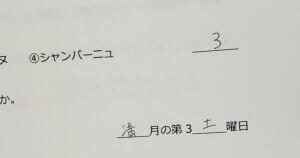 ヌ ④シャンパーニュ 3
か。
満月の第3土曜日